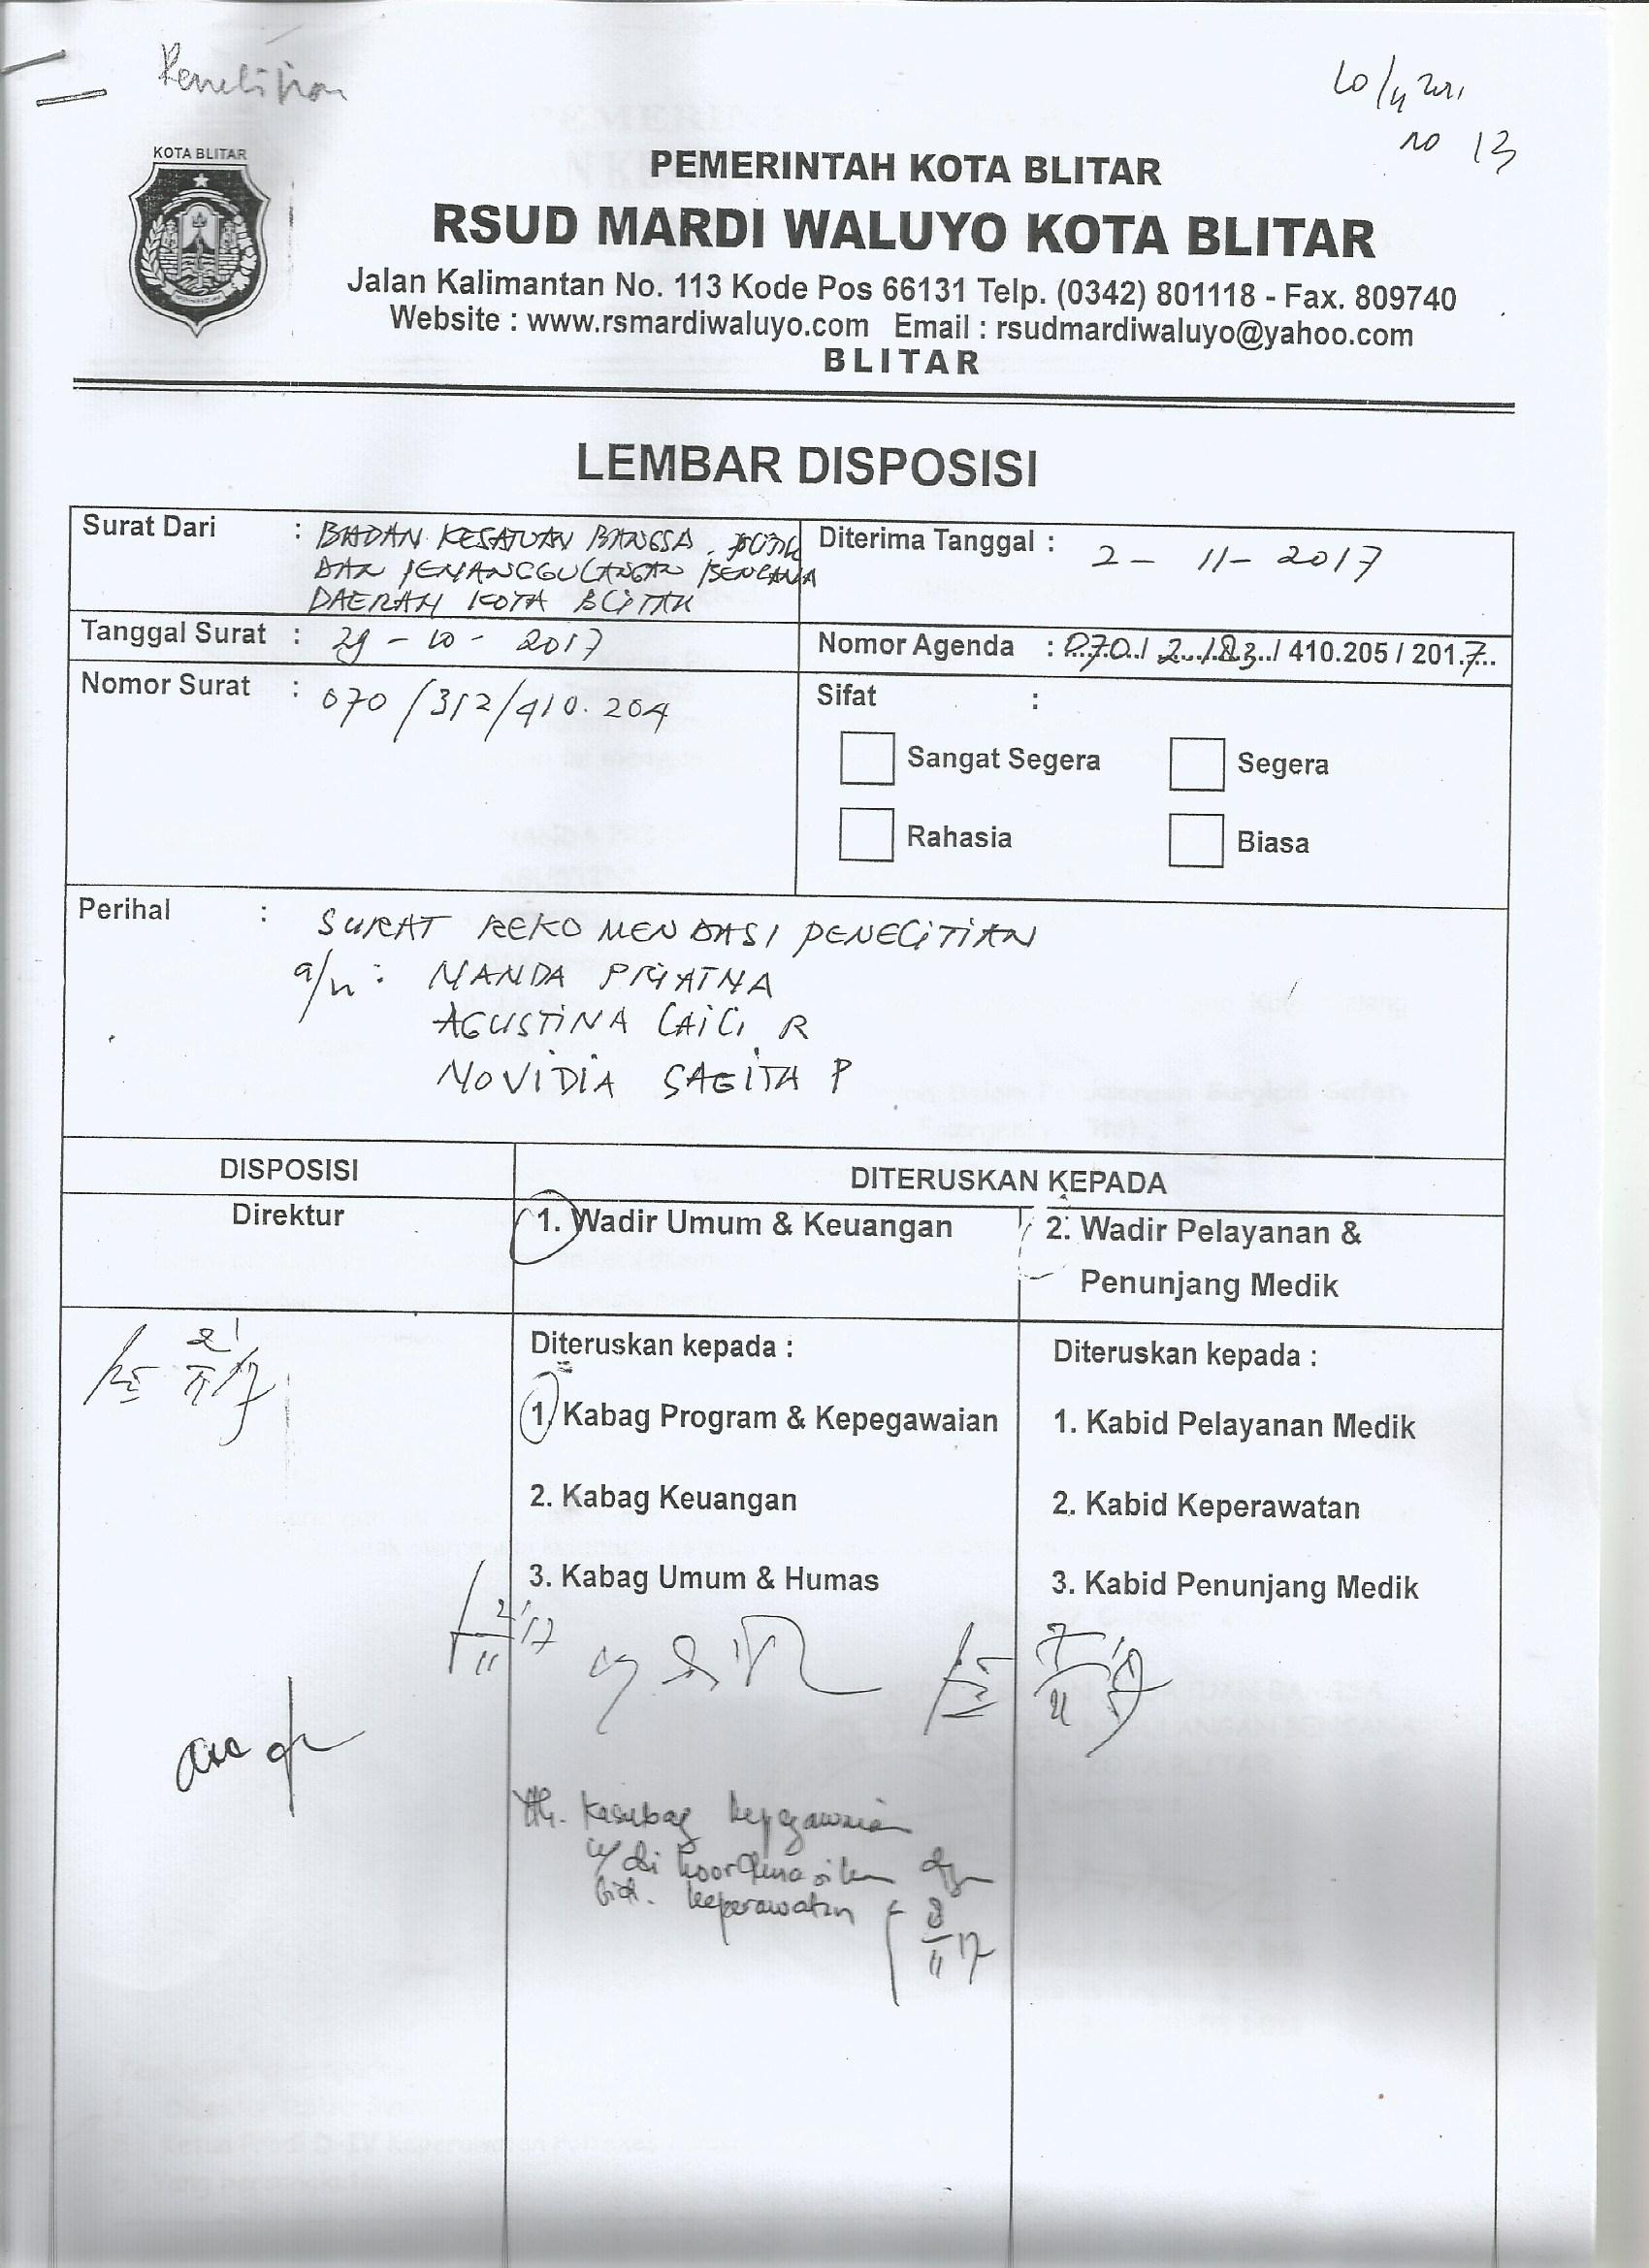 Penelitian
no 13
KOTA BLITAR
PEMERINTAH KOTA BLITAR
RSUD MARDI WALUYO KOTA BLITAR
Jalan Kalimantan No. 113 Kode Pos 66131 Telp. (0342) 801118 - Fax. 809740
Website : www.rsmardiwaluyo.com Email : rsudmardiwaluyo@yahoo.com
BLITAR
LEMBAR DISPOSISI
Surat Dari : BADAN KESATUAN BANGSA, POLITIK
DAN PENANGGULANGAN BENCANA
DAERAH KOTA BLITAR
Diterima Tanggal : 2 - 11 - 2017
Tanggal Surat : 29 - 10 - 2017
Nomor Agenda : 070 / 2.183 / 410.205 / 2017
Nomor Surat : 070 / 312 / 410.204
Sifat :
Sangat Segera Segera
Rahasia Biasa
Perihal : SURAT REKOMENDASI PENELITIAN
a/n : NANDA PRIYATNA
AGUSTINA LAILI R
NOVIDIA SAGITA P
DISPOSISI DITERUSKAN KEPADA
Direktur 1. Wadir Umum & Keuangan 2. Wadir Pelayanan &
Penunjang Medik
Diteruskan kepada : Diteruskan kepada :
1. Kabag Program & Kepegawaian 1. Kabid Pelayanan Medik
2. Kabag Keuangan 2. Kabid Keperawatan
3. Kabag Umum & Humas 3. Kabid Penunjang Medik
2/11 '17
7/11 '17
Yth. Kasubag Kepegawaian
u/ di koordinasikan dgn
bid. keperawatan
8/11 17